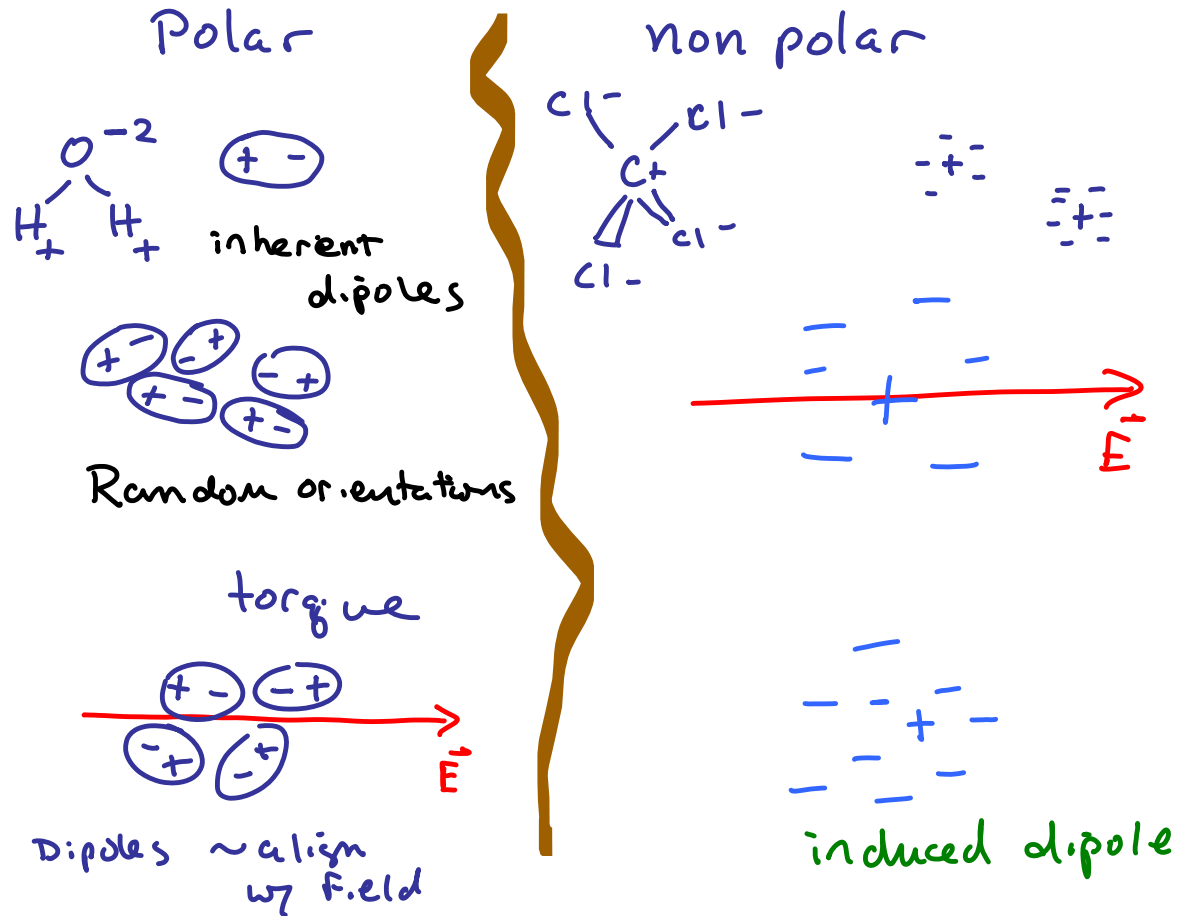 Polar
O -2
H + H +
+ -
inherent
dipoles
+ - - + - +
+ - + -
Random orientations
torque
+ - - +
- + - +
E
Dipoles ~ align
w/ Field
non polar
Cl - Cl -
C+
Cl -
Cl -
+
+
+
E
+
induced dipole